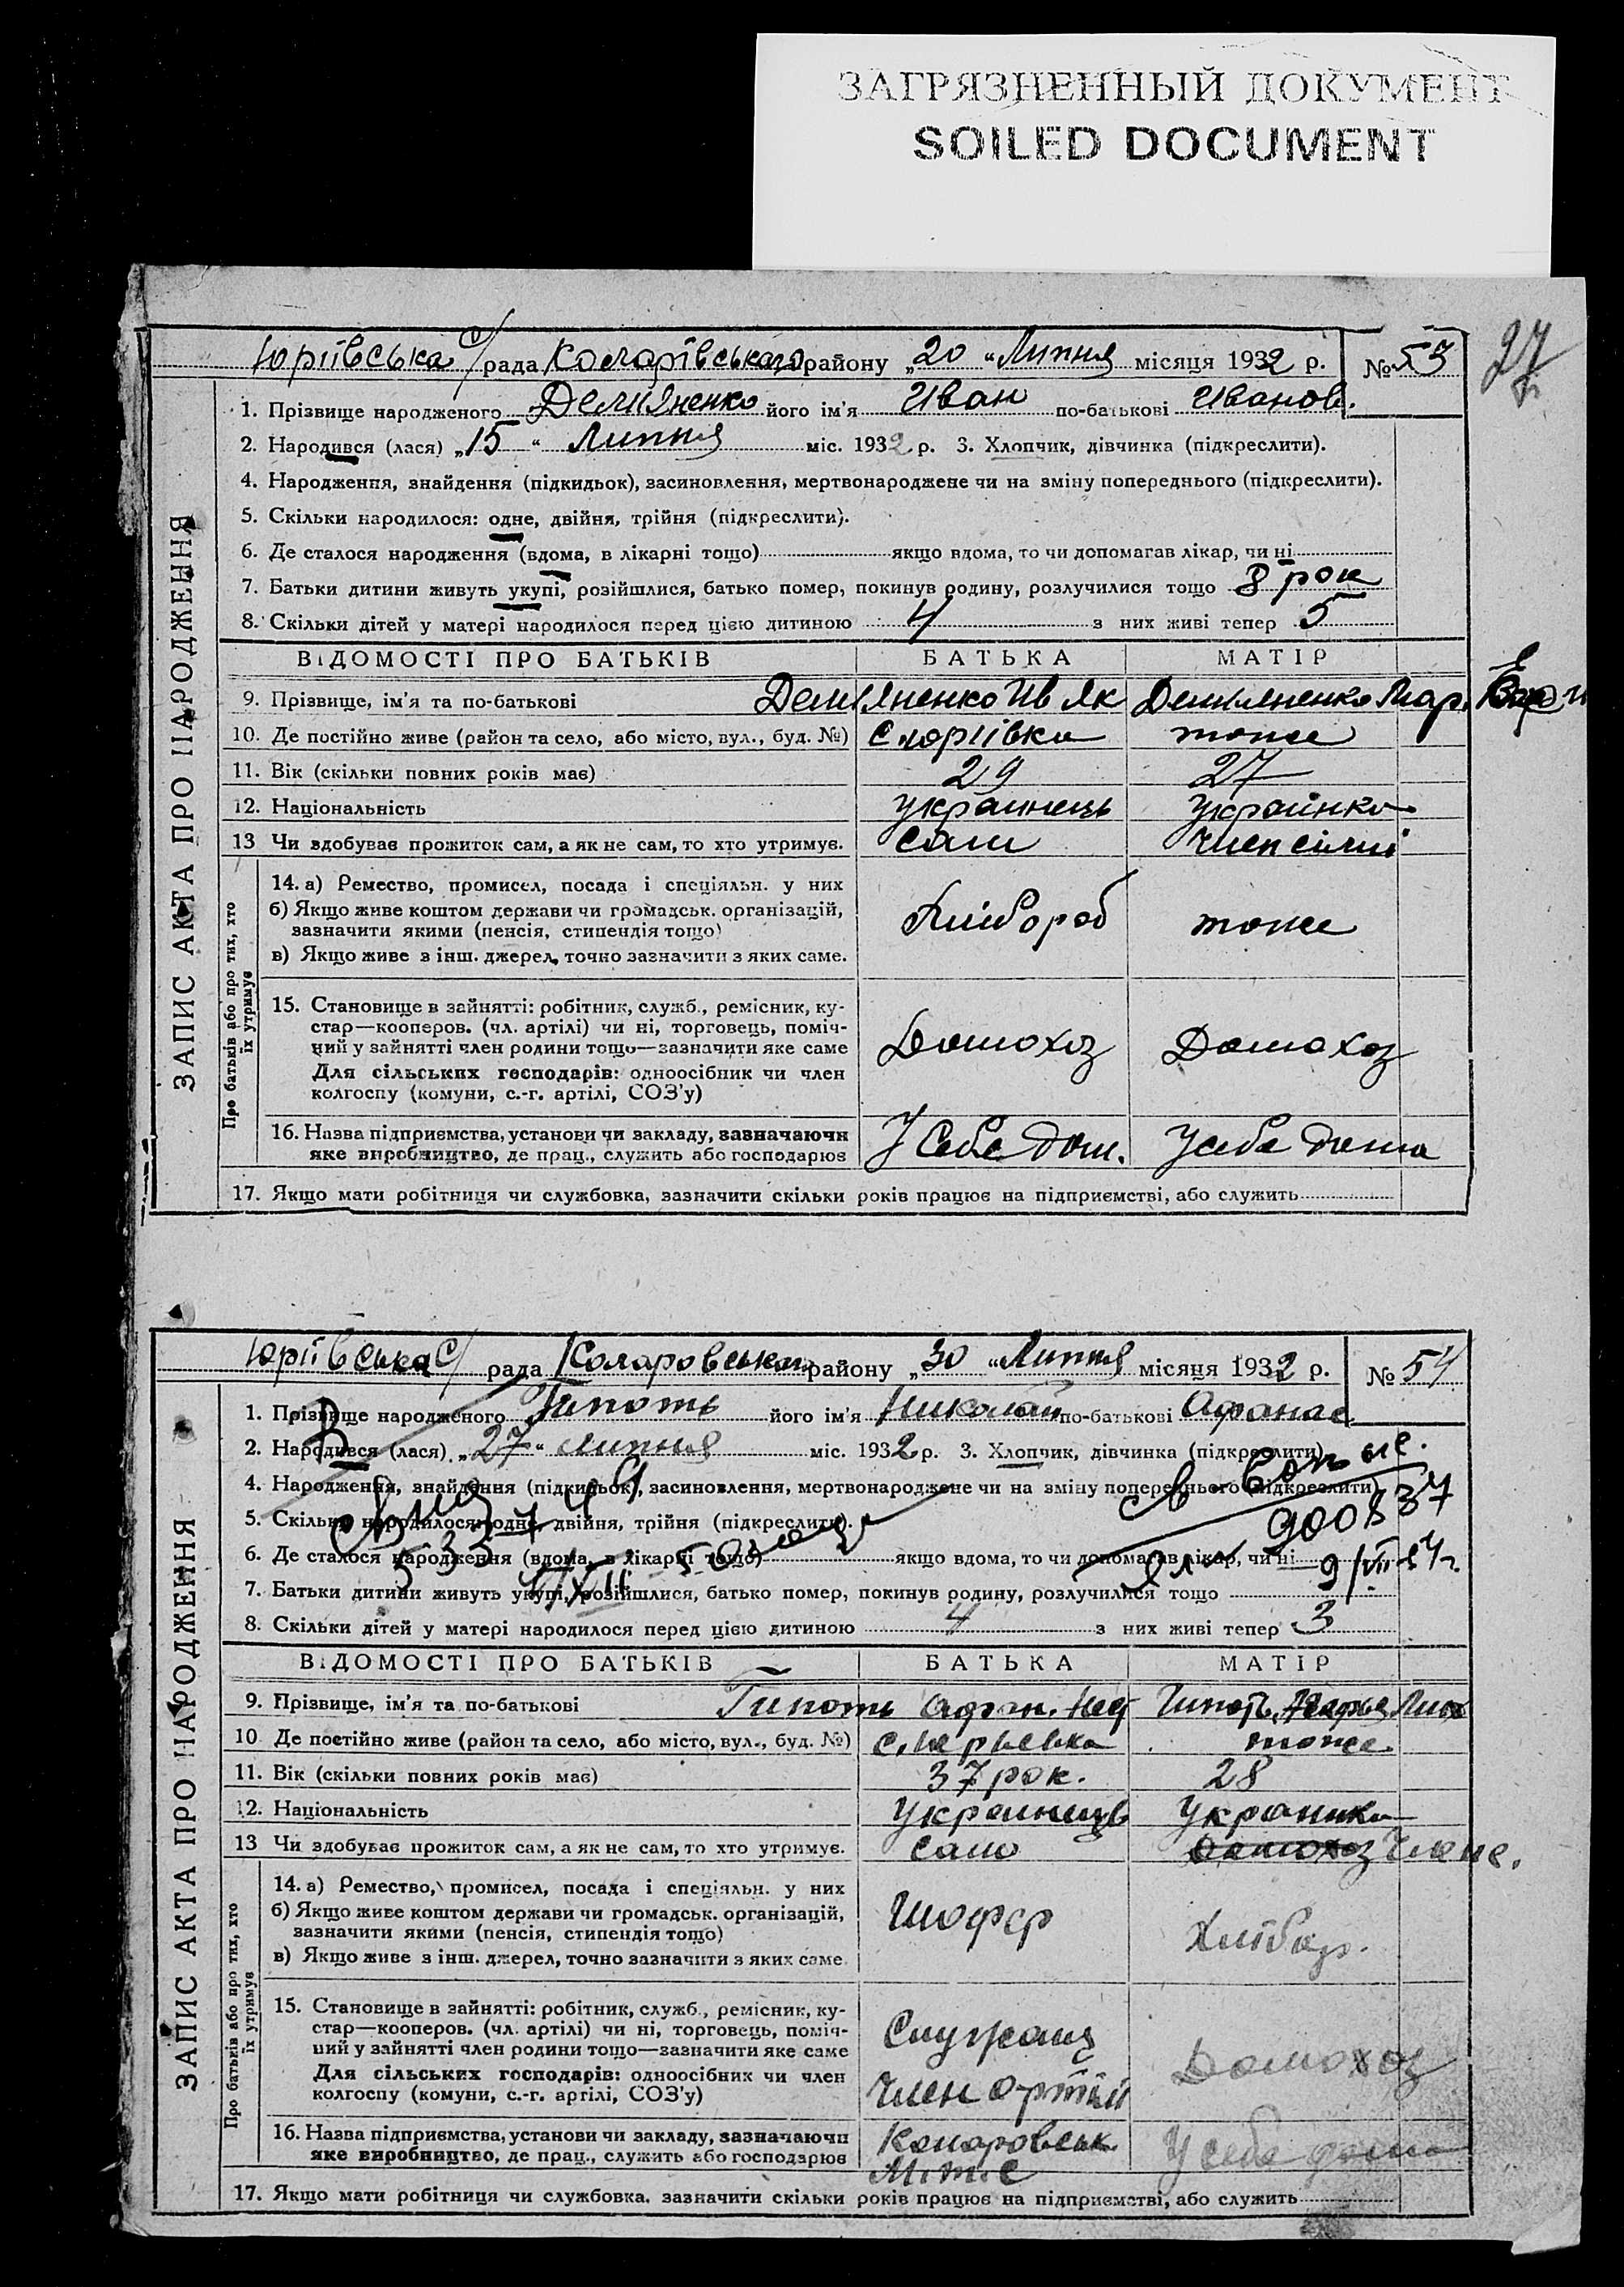 ЗАГРЯЗНЕННЫЙ ДОКУМЕНТ
SOILED DOCUMENT
27
Юріївська с/рада Коларівського району „20“ Липня місяця 1932 р. № 53
ЗАПИС АКТА ПРО НАРОДЖЕННЯ
1. Прізвище народженого Демьяненко його ім'я Иван по-батькові Иванов.
2. Народився (лася) „15“ Липня міс. 1932 р. 3. Хлопчик, дівчинка (підкреслити).
4. Народження, знайдення (підкидьок), засиновлення, мертвонароджене чи на зміну попереднього (підкреслити).
5. Скільки народилося: одне, двійня, трійня (підкреслити).
6. Де сталося народження (вдома, в лікарні тощо) якщо вдома, то чи допомагав лікар, чи ні
7. Батьки дитини живуть укупі, розійшлися, батько помер, покинув родину, розлучилися тощо 8 рок
8. Скільки дітей у матері народилося перед цією дитиною 4 з них живі тепер 5
ВІДОМОСТІ ПРО БАТЬКІВ БАТЬКА МАТІР
9. Прізвище, ім'я та по-батькові Демьяненко Ив Як Демьяненко Мар.
10. Де постійно живе (район та село, або місто, вул., буд. №) с Юріївка тоже
11. Вік (скільки повних років має) 29 27
12. Національність Украинець Украінка
13 Чи здобуває прожиток сам, а як не сам, то хто утримує. Сам Член сімьі
Про батьків або про тих, хто їх утримує
14. а) Ремество, промисел, посада і спеціяльн. у них
б) Якщо живе коштом держави чи громадськ. організацій, зазначити якими (пенсія, стипендія тощо)
в) Якщо живе з інш. джерел, точно зазначити з яких саме.
Хлібороб тоже
15. Становище в зайнятті: робітник, служб., ремісник, ку-
стар—кооперов. (чл. артілі) чи ні, торговець, поміч-
ний у зайнятті член родини тощо—зазначити яке саме
Для сільських господарів: одноосібник чи член
колгоспу (комуни, с.-г. артілі, СОЗ'у)
Домохоз Домохоз
16. Назва підприємства, установи чи закладу, зазначаючи
яке виробництво, де прац., служить або господарює
У Себе дом. У себе дома
17. Якщо мати робітниця чи службовка, зазначити скільки років працює на підприємстві, або служить
Юріївська с/рада Коларовського району „30“ Липня місяця 1932 р. № 54
ЗАПИС АКТА ПРО НАРОДЖЕННЯ
1. Прізвище народженого Гипоть його ім'я Николай по-батькові Афанас
2. Народився (лася) „27“ липня міс. 1932 р. 3. Хлопчик, дівчинка (підкреслити)
4. Народження, знайдення (підкидьок), засиновлення, мертвонароджене чи на зміну попереднього (підкреслити)
5. Скільки народилося: одне, двійня, трійня (підкреслити).
900837
6. Де сталося народження (вдома, в лікарні тощо) якщо вдома, то чи допомагав лікар, чи ні
7. Батьки дитини живуть укупі, розійшлися, батько помер, покинув родину, розлучилися тощо
8. Скільки дітей у матері народилося перед цією дитиною 4 з них живі тепер 3
ВІДОМОСТІ ПРО БАТЬКІВ БАТЬКА МАТІР
9. Прізвище, ім'я та по-батькові Гипоть Афан. Гипоть
10 Де постійно живе (район та село, або місто, вул., буд. №) с. Юрьевка тоже
11. Вік (скільки повних років має) 37 рок. 28
12. Національність Украинець Украинка
13 Чи здобуває прожиток сам, а як не сам, то хто утримує. Сам
Про батьків або про тих, хто їх утримує
14. а) Ремество, промисел, посада і спеціяльн. у них
б) Якщо живе коштом держави чи громадськ. організацій,
зазначити якими (пенсія, стипендія тощо)
в) Якщо живе з інш. джерел, точно зазначити з яких саме
Шофер Хлібор.
15. Становище в зайнятті: робітник, служб., ремісник, ку-
стар—кооперов. (чл. артілі) чи ні, торговець, поміч-
ний у зайнятті член родини тощо—зазначити яке саме
Для сільських господарів: одноосібник чи член
колгоспу (комуни, с.-г. артілі, СОЗ'у)
Служащ
Член Артілі Домохоз
16. Назва підприємства, установи чи закладу, зазначаючи
яке виробництво, де прац., служить або господарює
Коларовськ
М.т.с У себе дома
17. Якщо мати робітниця чи службовка, зазначити скільки років працює на підприємстві, або служить